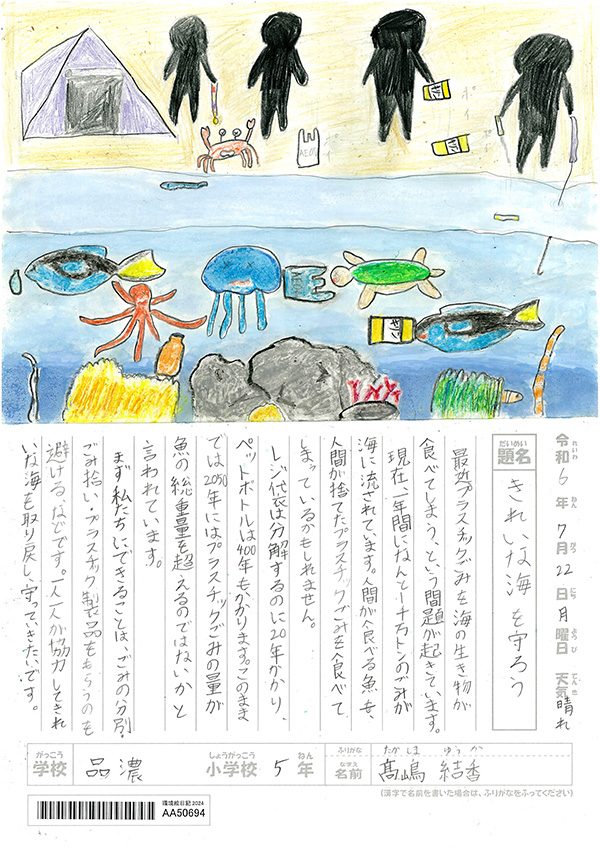 ポイ
ポイ
ポイ
令和6年7月22日月曜日 天気晴れ
れいわ ねん がつ にち ようび てんき
だいめい
題名
きれいな海を守ろう
最近プラスチックごみを海の生き物が
食べてしまう、という問題が起きています。
現在、一年間になんと一千万トンのごみが
海に流されています。人間が食べる魚も、
人間が捨てたプラスチックごみを食べて
しまっているかもしれません。
レジ袋は分解するのに20年かかり、
ペットボトルは400年もかかります。このまま
では2050年にはプラスチックごみの量が
魚の総重量を超えるのではないかと
言われています。
まず私たちにできることは、ごみの分別、
ごみ拾い・プラスチック製品をもらうのを
避ける、などです。一人一人が協力してきれ
いな海を取り戻し、守っていきたいです。
がっこう
学校 品濃
しょうがっこう
小学校
5
ねん
年
ふりがな たかしま ゆうか
なまえ
名前 髙嶋 結香
(漢字で名前を書いた場合は、ふりがなをふってください)
環境絵日記2024
AA50694